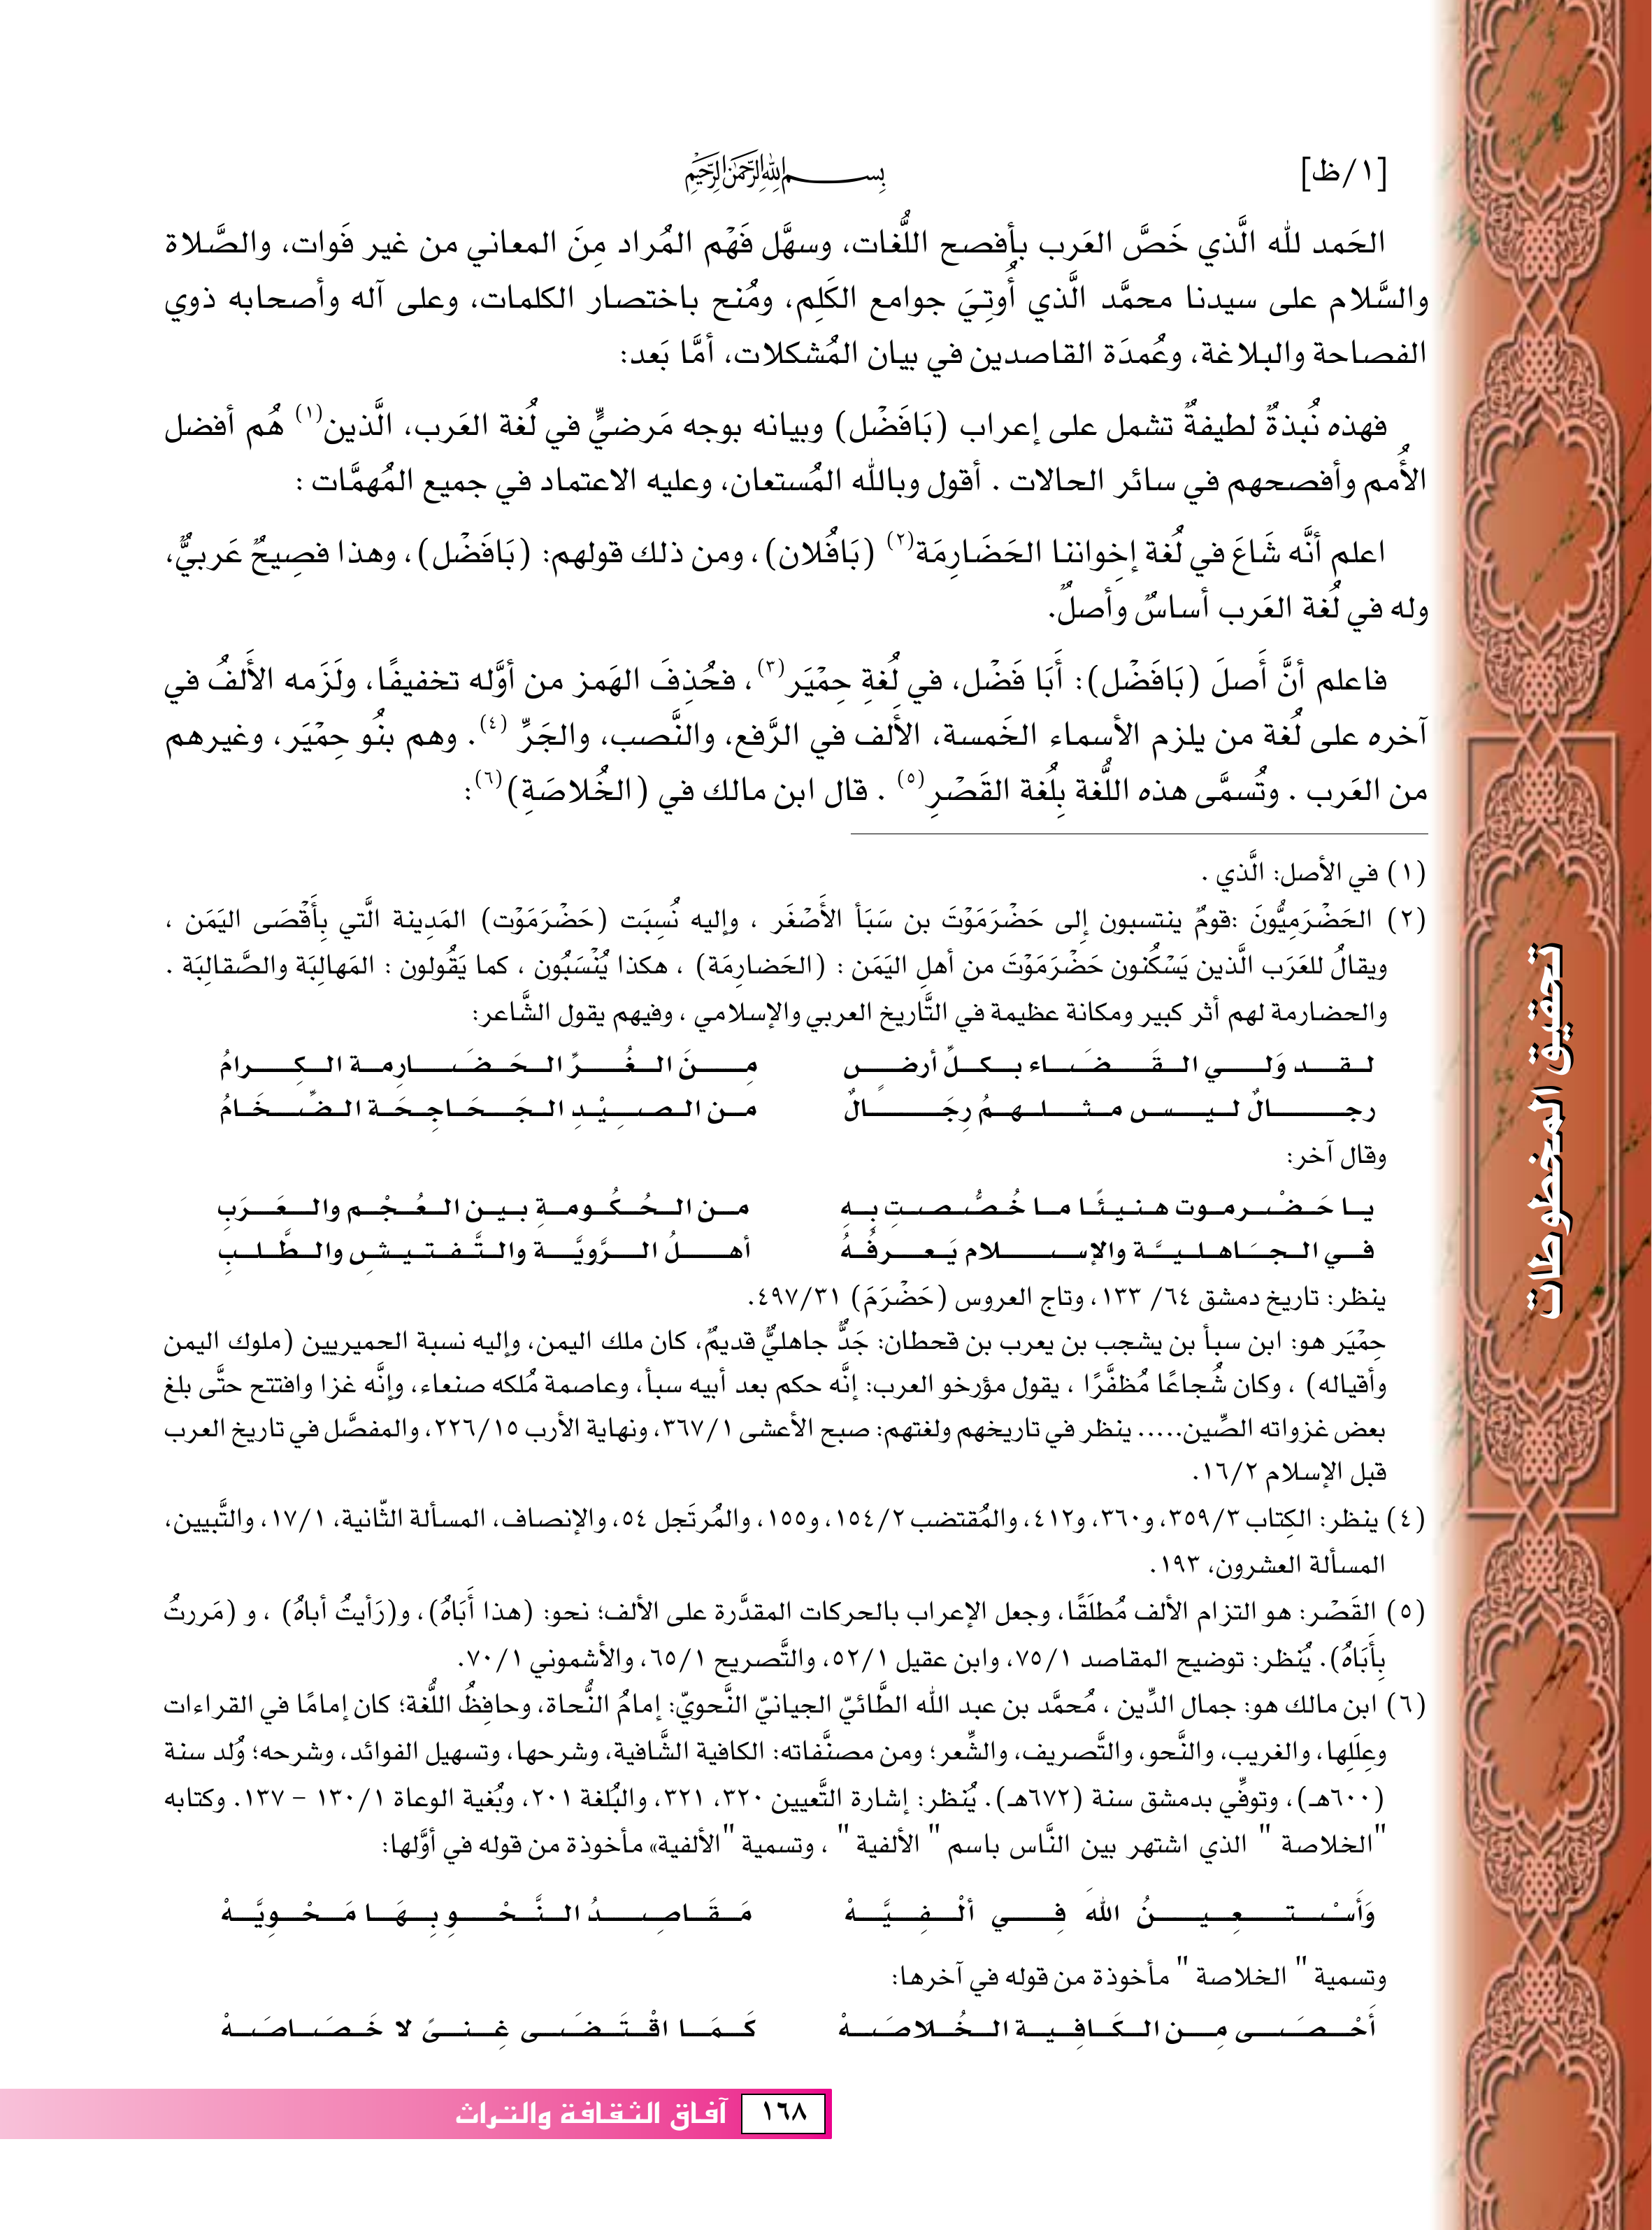 [١/ظ]
بسم الله الرحمن الرحيم
الحَمد لله الَّذي خَصَّ العَرب بأفصح اللُّغات، وسهَّل فَهْم المُراد مِنَ المعاني من غير فَوات، والصَّلاة
والسَّلام على سيدنا محمَّد الَّذي أُوتِيَ جوامع الكَلِم، ومُنح باختصار الكلمات، وعلى آله وأصحابه ذوي
الفصاحة والبلاغة، وعُمدَة القاصدين في بيان المُشكلات، أمَّا بَعد:
فهذه نُبذةٌ لطيفةٌ تشمل على إعراب (بَافَضْل) وبيانه بوجه مَرضيٍّ في لُغة العَرب، الَّذين(١) هُم أفضل
الأُمم وأفصحهم في سائر الحالات . أقول وبالله المُستعان، وعليه الاعتماد في جميع المُهمَّات :
اعلم أنَّه شَاعَ في لُغة إخواننا الحَضَارِمَة(٢) (بَافُلان)، ومن ذلك قولهم: (بَافَضْل)، وهذا فصِيحٌ عَربيٌّ،
وله في لُغة العَرب أساسٌ وأصلٌ.
فاعلم أنَّ أَصلَ (بَافَضْل): أَبَا فَضْل، في لُغةِ حِمْيَر(٣)، فحُذِفَ الهَمز من أوَّله تخفيفًا، ولَزَمه الأَلفُ في
آخره على لُغة من يلزم الأسماء الخَمسة، الأَلف في الرَّفع، والنَّصب، والجَرِّ (٤). وهم بنُو حِمْيَر، وغيرهم
من العَرب . وتُسمَّى هذه اللُّغة بِلُغة القَصْرِ(٥) . قال ابن مالك في (الخُلاصَةِ)(٦):
(١) في الأصل: الَّذي .
(٢) الحَضْرَمِيُّونَ :قومٌ ينتسبون إلى حَضْرَمَوْتَ بن سَبَأ الأَصْغَر ، وإليه نُسِبَت (حَضْرَمَوْت) المَدِينة الَّتي بِأَقْصَى اليَمَن ،
ويقالُ للعَرَب الَّذين يَسْكُنون حَضْرَمَوْتَ من أهلِ اليَمَن : (الحَضارِمَة) ، هكذا يُنْسَبُون ، كما يَقُولون : المَهالِبَة والصَّقالِبَة .
والحضارمة لهم أثر كبير ومكانة عظيمة في التَّاريخ العربي والإسلامي ، وفيهم يقول الشَّاعر:
لقد وَلي القَضَاء بكلِّ أرضٍ مِنَ الغُرِّ الحَضَارِمة الكِرامُ
رجالٌ ليس مثلهمُ رِجَالٌ من الصِيْدِ الجَحَاجِحَة الضِّخَامُ
وقال آخر:
يا حَضْرموت هنيئًا ما خُصُّصتِ بِهِ من الحُكُومةِ بين العُجْم والعَرَبِ
في الجَاهليَّة والإسلام يَعرفُهُ أهلُ الرَّويَّة والتَّفتيش والطَّلبِ
ينظر: تاريخ دمشق ٦٤/ ١٣٣، وتاج العروس (حَضْرَمَ) ٤٩٧/٣١.
حِمْيَر هو: ابن سبأ بن يشجب بن يعرب بن قحطان: جَدٌّ جاهليٌّ قديمٌ، كان ملك اليمن، وإليه نسبة الحميريين (ملوك اليمن
وأقياله) ، وكان شُجاعًا مُظفَّرًا ، يقول مؤرخو العرب: إنَّه حكم بعد أبيه سبأ، وعاصمة مُلكه صنعاء، وإنَّه غزا وافتتح حتَّى بلغ
بعض غزواته الصِّين..... ينظر في تاريخهم ولغتهم: صبح الأعشى ٣٦٧/١، ونهاية الأرب ٢٢٦/١٥، والمفصَّل في تاريخ العرب
قبل الإسلام ١٦/٢.
(٤) ينظر: الكِتاب ٣٥٩/٣، و٣٦٠، و٤١٢، والمُقتضب ١٥٤/٢، و١٥٥، والمُرتَجل ٥٤، والإنصاف، المسألة الثّانية، ١٧/١، والتَّبيين،
المسألة العشرون، ١٩٣.
(٥) القَصْر: هو التزام الألف مُطلَقًا، وجعل الإعراب بالحركات المقدَّرة على الألف؛ نحو: (هذا أَبَاهُ)، و(رَأيتُ أباهُ) ، و (مَررتُ
بِأَبَاهُ). يُنظر: توضيح المقاصد ٧٥/١، وابن عقيل ٥٢/١، والتَّصريح ٦٥/١، والأشموني ٧٠/١.
(٦) ابن مالك هو: جمال الدِّين ، مُحمَّد بن عبد الله الطَّائيّ الجيانيّ النَّحويّ: إمامُ النُّحاة، وحافِظُ اللُّغة؛ كان إمامًا في القراءات
وعِلَلِها، والغريب، والنَّحو، والتَّصريف، والشِّعر؛ ومن مصنَّفاته: الكافية الشَّافية، وشرحها، وتسهيل الفوائد، وشرحه؛ وُلد سنة
(٦٠٠هـ)، وتوفِّي بدمشق سنة (٦٧٢هـ). يُنظر: إشارة التَّعيين ٣٢٠، ٣٢١، والبُلغة ٢٠١، وبُغية الوعاة ١٣٠/١ – ١٣٧. وكتابه
"الخلاصة " الذي اشتهر بين النَّاس باسم " الألفية " ، وتسمية "الألفية» مأخوذة من قوله في أوَّلها:
وَأَسْتعِينُ اللهَ فِي ألْفِيَّهْ مَقَاصِدُ النَّحْوِ بِهَا مَحْوِيَّهْ
وتسمية " الخلاصة " مأخوذة من قوله في آخرها:
أَحْصَى مِن الكَافِية الخُلاصَهْ كَمَا اقْتَضَى غِنىً لا خَصَاصَهْ
١٦٨ آفاق الثقافة والتراث
تحقيق المخطوطات